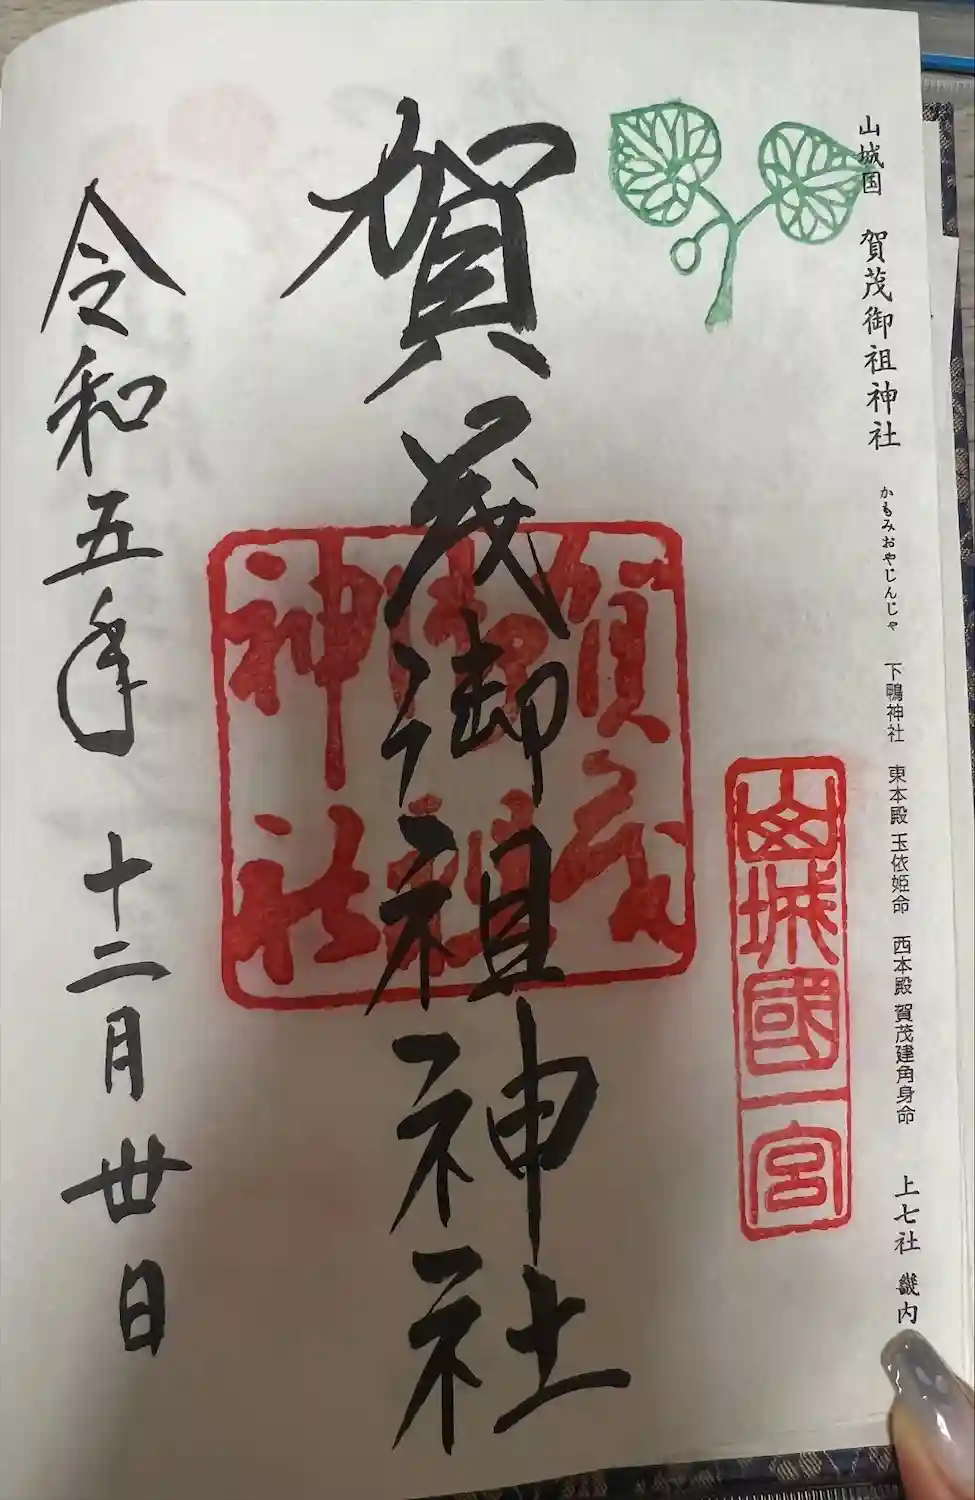 山城国 賀茂御祖神社 かもみおやじんじゃ 下鴨神社 東本殿 玉依姫命 西本殿 賀茂建角身命 上七社 畿内
山城國一宮
賀茂御祖神社
賀茂
御祖
神社
令和五年 十二月 丗日